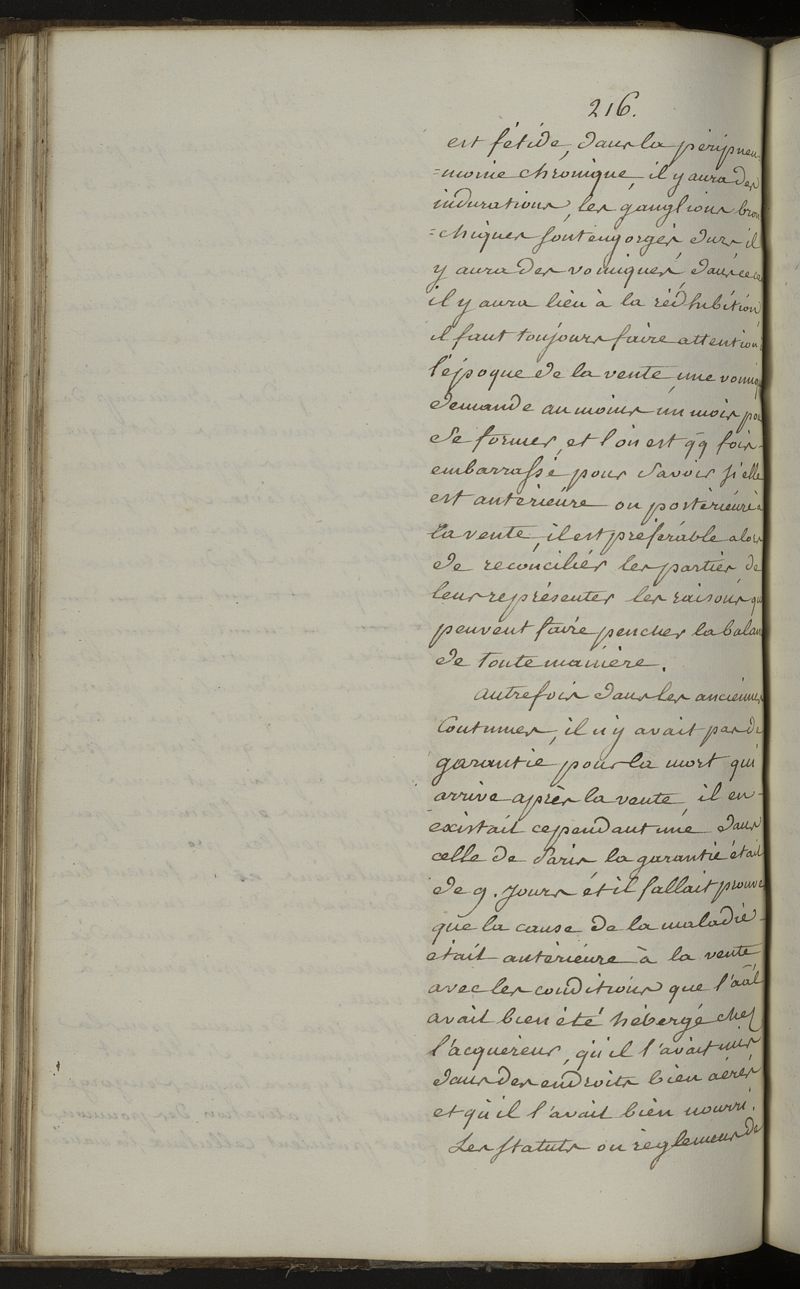 216.
est fétide, dans la péripneu
=monie chronique, il y aura des
indurations, les ganglions bron
=chiques sont engorgés, durs il
y aura des vomiques, dans ce
il y aura lieu à la rédhibition
il faut toujours faire attention
l'époque de la vente, une vomiq
demande au moins un mois po
se former, et l'on est qq fois
embarrassé pour savoir si elle
est antérieure ou postérieure à
la vente, il est préférable alors
de reconcilier les parties de
leur représenter les raisons qu
peuvent faire pencher la balan
de toute manière.
autrefois dans les anciennes
Coutumes, il n'y avait pas de
garantie pour la mort qui
arrive après la vente, il en
existait cependant une dans
celle de Paris la garantie était
de 9. Jours et il fallait prouve
que la cause de la maladie
était antérieure à la vente
avec les conditions que l'aãl
avait bien été hébergé chez
l'acquereur, qu'il l'avait mis
dans des endroits bien aérés
et qu'il l'avait bien nourri.
Les statuts ou règlemens de